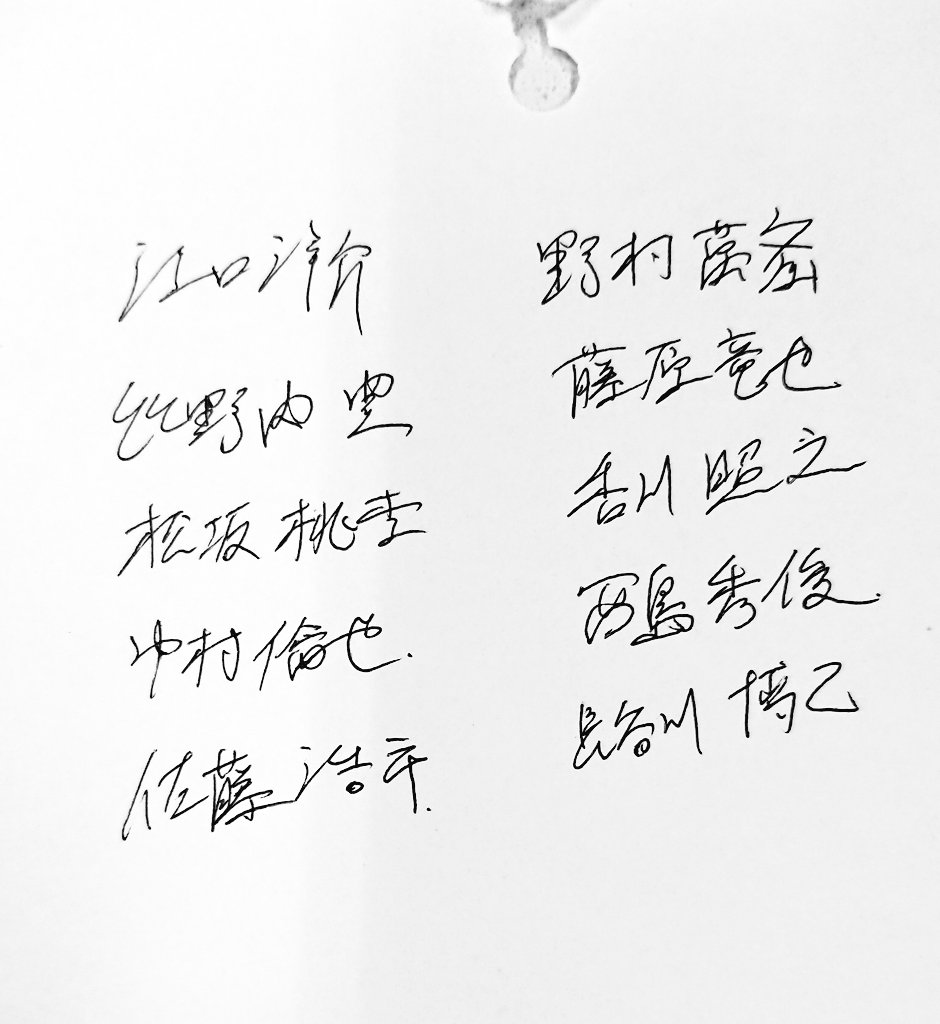 江口洋介
竹野内豊
松坂桃李
中村倫也.
佐藤浩市.
野村萬斎
藤原竜也
香川照之
西島秀俊.
長谷川博己